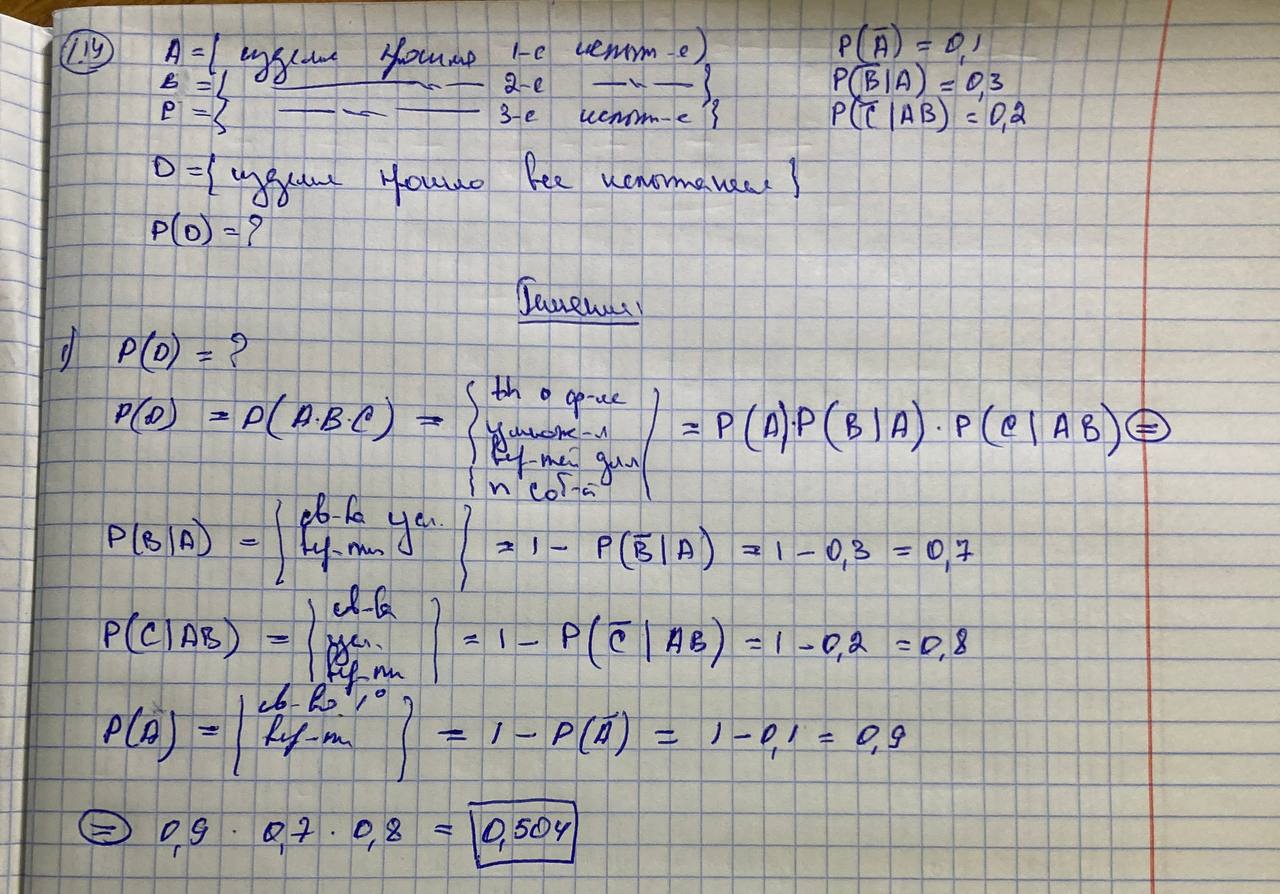 1.14 A = { изделие прошло 1-е испыт-е } P(Ā) = 0,1
B = { —〃— 2-е —〃— } P(B̄|A) = 0,3
C = { —〃— 3-е испыт-е } P(C̄|AB) = 0,2
D = { изделие прошло все испытания }
P(D) = ?
Решение:
1) P(D) = ?
P(D) = P(A·B·C) = { th о ф-ле умнож-я вер-тей для n соб-й } = P(A)·P(B|A)·P(C|AB) =
P(B|A) = { св-ва усл. вер-ти } = 1 - P(B̄|A) = 1 - 0,3 = 0,7
P(C|AB) = { св-ва усл. вер-ти } = 1 - P(C̄|AB) = 1 - 0,2 = 0,8
P(A) = { св-во 1° вер-ти } = 1 - P(Ā) = 1 - 0,1 = 0,9
= 0,9 · 0,7 · 0,8 = 0,504